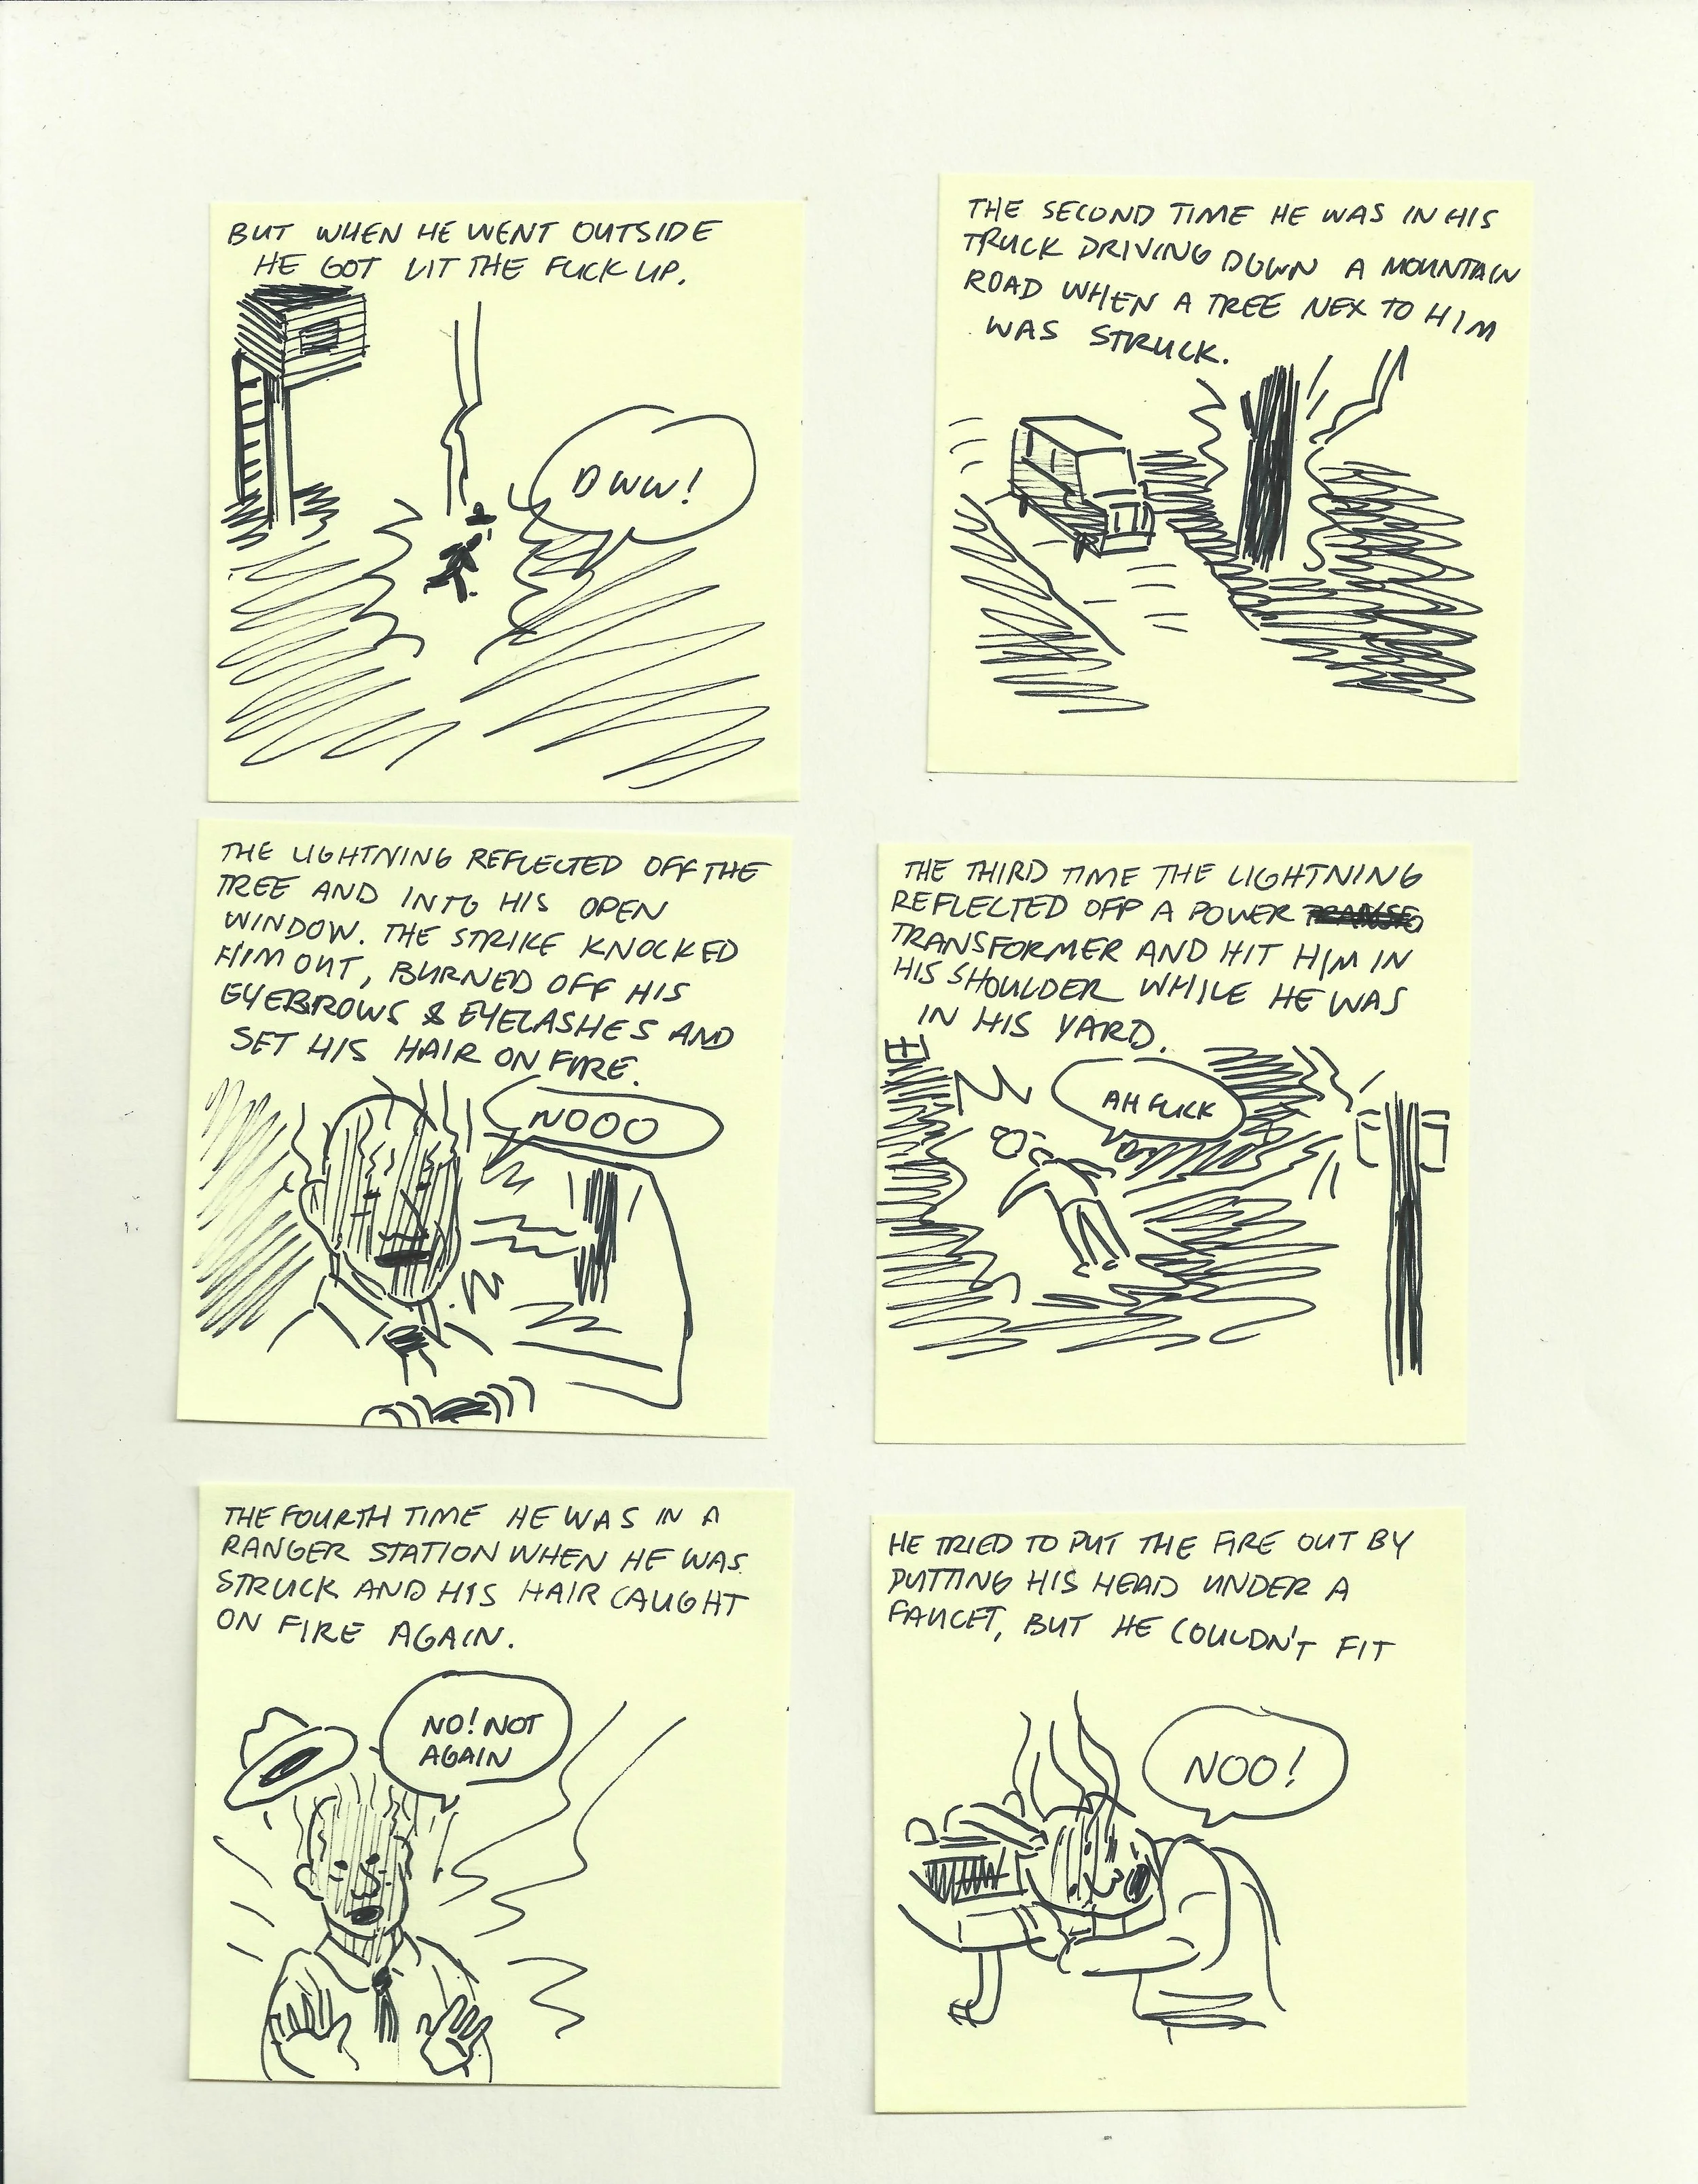 BUT WHEN HE WENT OUTSIDE
HE GOT LIT THE FUCK UP.
OWW!
THE SECOND TIME HE WAS IN HIS
TRUCK DRIVING DOWN A MOUNTAIN
ROAD WHEN A TREE NEX TO HIM
WAS STRUCK.
THE LIGHTNING REFLECTED OFF THE
TREE AND INTO HIS OPEN
WINDOW. THE STRIKE KNOCKED
HIM OUT, BURNED OFF HIS
EYEBROWS & EYELASHES AND
SET HIS HAIR ON FIRE.
NOOO
THE THIRD TIME THE LIGHTNING
REFLECTED OFF A POWER
TRANSFORMER AND HIT HIM IN
HIS SHOULDER WHILE HE WAS
IN HIS YARD.
AH FUCK
THE FOURTH TIME HE WAS IN A
RANGER STATION WHEN HE WAS
STRUCK AND HIS HAIR CAUGHT
ON FIRE AGAIN.
NO! NOT
AGAIN
HE TRIED TO PUT THE FIRE OUT BY
PUTTING HIS HEAD UNDER A
FAUCET, BUT HE COULDN'T FIT
NOO!